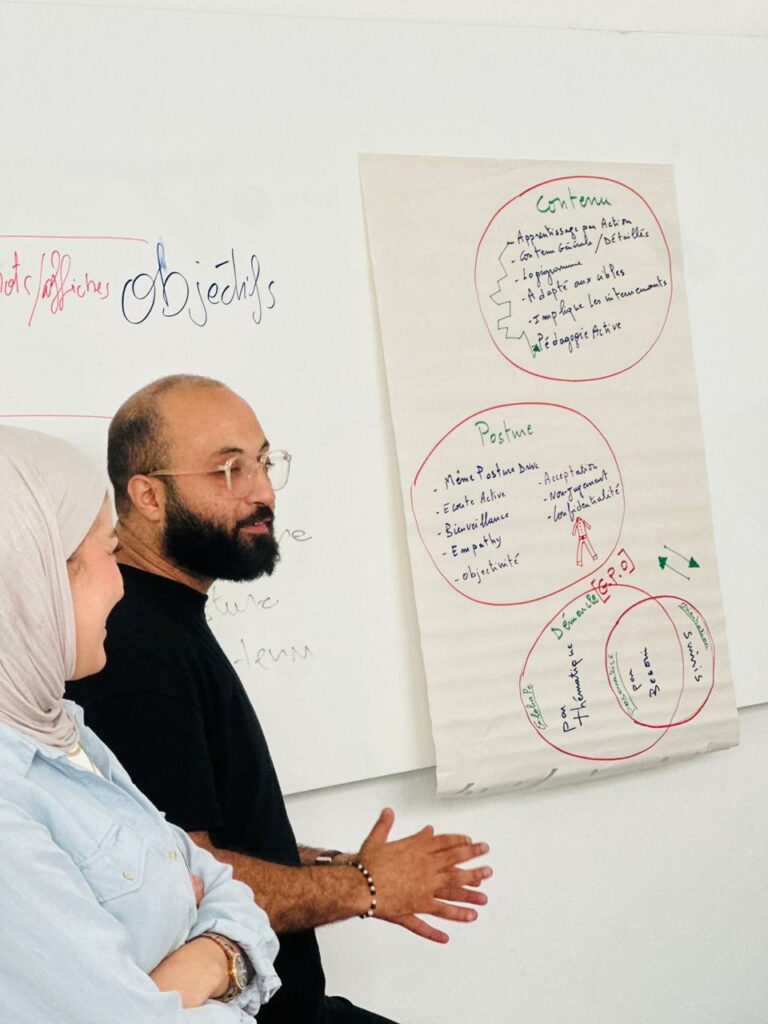 mots/affiches
Objéctifs
Contenu
- Apprentissage par Action
- Contenu Générale / Détaillés
- Logigramme
- Adapté aux cibles
- Implique les intervenants
- Pédagogie Active
Posture
- Même Posture
- Ecoute Active
- Bienveillance
- Empathy
- Objectivité
- Acceptation
- Non jugement
- Confidentialité
Démarche [G.P.O]
Globale
Par thématique
Personnalisé
Par Besoin
Orientation
Suivis